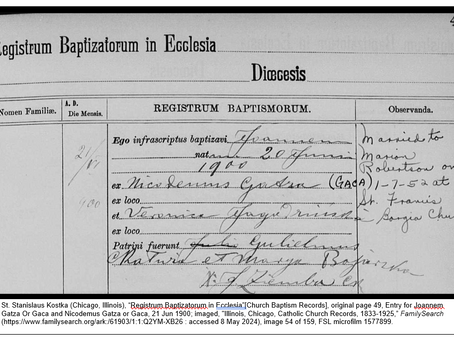 4
Registrum Baptizatorum in Ecclesia
Diœcesis
Nomen Familiæ.
A. D.
Die Mensis.
REGISTRUM BAPTISMORUM.
Observanda.
Ego infrascriptus baptizavi Joannem
nat 20 Junii
1900
ex Nicodemus Gatza (GACA)
ex loco
et Veronica
ex loco
Patrini fuerunt Gulielmus
et Marya
Married to
Marion
Robertson on
1-7-52 at
St. Francis
Borgia Chu
21/VI
900
St. Stanislaus Kostka (Chicago, Illinois), "Registrum Baptizatorum in Ecclesia"[Church Baptism Records], original page 49, Entry for Joannem
Gatza Or Gaca and Nicodemus Gatza or Gaca, 21 Jun 1900; imaged, "Illinois, Chicago, Catholic Church Records, 1833-1925," FamilySearch
(https://www.familysearch.org/ark:/61903/1:1:Q2YM-XB26 : accessed 8 May 2024), image 54 of 159, FSL microfilm 1577899.